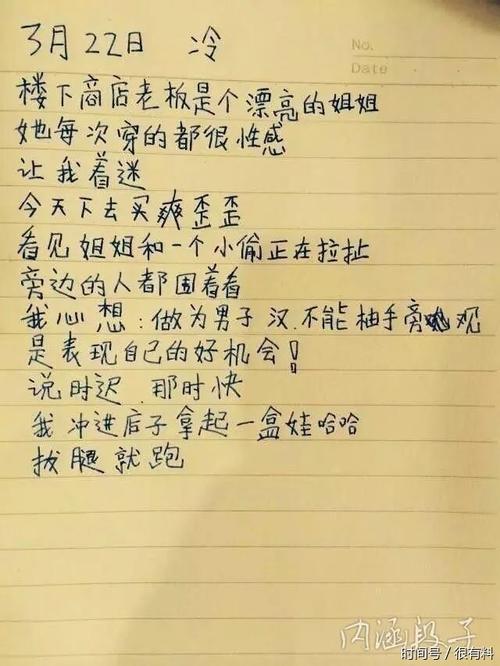 3月22日 冷
No.
Date
楼下商店老板是个漂亮的姐姐
她每次穿的都很性感
让我着迷
今天下去买爽歪歪
看见姐姐和一个小偷正在拉扯
旁边的人都围着看
我心想:做为男子汉.不能柚手旁观
是表现自己的好机会!
说时迟.那时快
我冲进店子拿起一盒娃哈哈
拔腿就跑
内涵段子
时间号/很有料